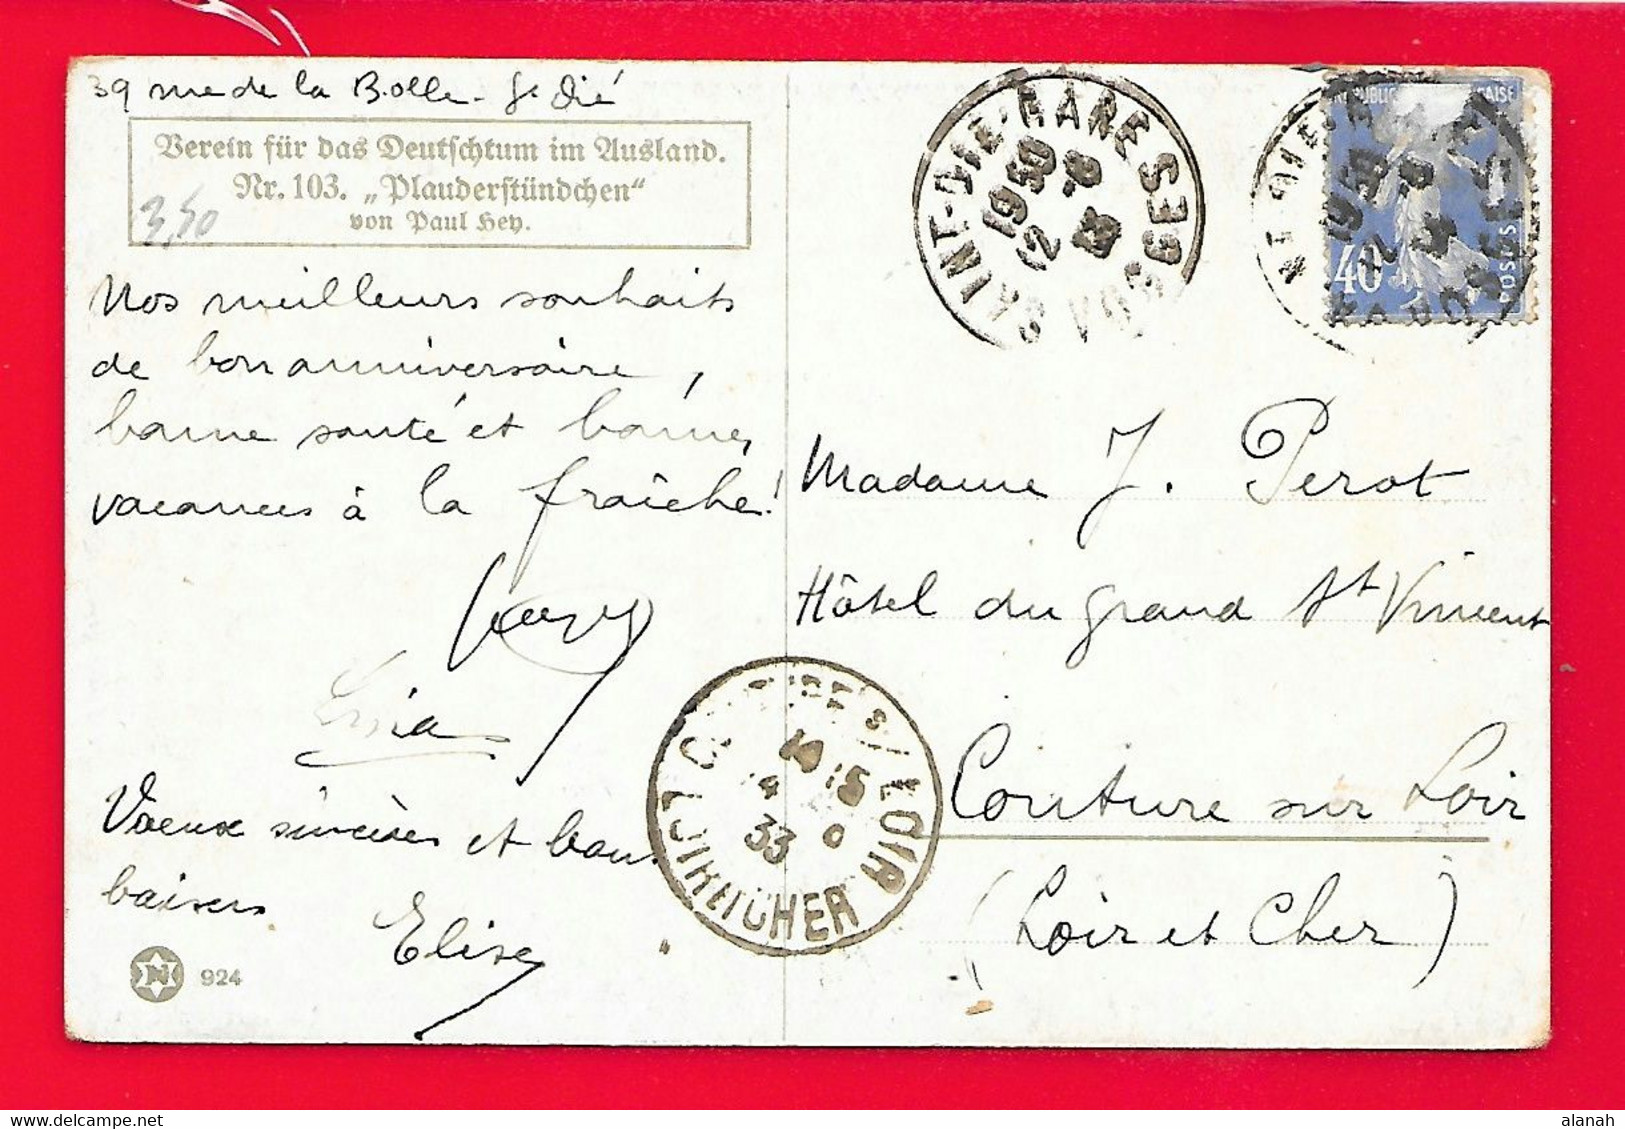 39 rue de la Bolle - St Dié
Verein für das Deutschtum im Ausland.
Nr. 103. „Plauderstündchen“
von Paul Hey.
3,50
Nos meilleurs souhaits
de bon anniversaire,
bonne santé et bonnes
vacances à la fraîche!
Voeux sincères et bons
baisers
Elise
924
SAINT-DIE VOSGES
1950
12
40
POSTES
Madame J. Perot
Hôtel du grand St Vincent
Couture sur Loir
(Loir et Cher)
S/LOIR
33
alanah